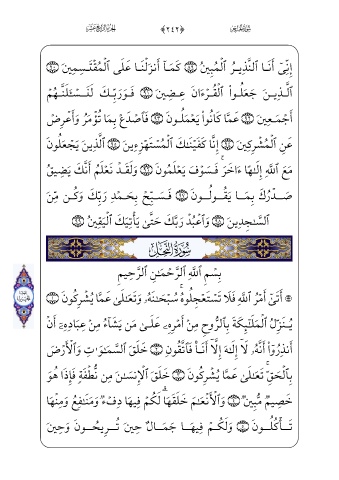 ﴿٢٤٢﴾
إِنِّىٓ أَنَا ٱلنَّذِيرُ ٱلْمُبِينُ كَمَآ أَنزَلْنَا عَلَى ٱلْمُقْتَسِمِينَ
ٱلَّذِينَ جَعَلُوا۟ ٱلْقُرْءَانَ عِضِينَ فَوَرَبِّكَ لَنَسْـَٔلَنَّهُمْ
أَجْمَعِينَ عَمَّا كَانُوا۟ يَعْمَلُونَ فَٱصْدَعْ بِمَا تُؤْمَرُ وَأَعْرِضْ
عَنِ ٱلْمُشْرِكِينَ إِنَّا كَفَيْنَٰكَ ٱلْمُسْتَهْزِءِينَ ٱلَّذِينَ يَجْعَلُونَ
مَعَ ٱللَّهِ إِلَٰهًا ءَاخَرَ ۚ فَسَوْفَ يَعْلَمُونَ وَلَقَدْ نَعْلَمُ أَنَّكَ يَضِيقُ
صَدْرُكَ بِمَا يَقُولُونَ فَسَبِّحْ بِحَمْدِ رَبِّكَ وَكُن مِّنَ
ٱلسَّٰجِدِينَ وَٱعْبُدْ رَبَّكَ حَتَّىٰ يَأْتِيَكَ ٱلْيَقِينُ
سُورَةُ النَّحْلِ
بِسْمِ ٱللَّهِ ٱلرَّحْمَٰنِ ٱلرَّحِيمِ
۞ أَتَىٰٓ أَمْرُ ٱللَّهِ فَلَا تَسْتَعْجِلُوهُ ۚ سُبْحَٰنَهُۥ وَتَعَٰلَىٰ عَمَّا يُشْرِكُونَ
يُنَزِّلُ ٱلْمَلَٰٓئِكَةَ بِٱلرُّوحِ مِنْ أَمْرِهِۦ عَلَىٰ مَن يَشَآءُ مِنْ عِبَادِهِۦٓ أَنْ
أَنذِرُوٓا۟ أَنَّهُۥ لَآ إِلَٰهَ إِلَّآ أَنَا۠ فَٱتَّقُونِ خَلَقَ ٱلسَّمَٰوَٰتِ وَٱلْأَرْضَ
بِٱلْحَقِّ ۚ تَعَٰلَىٰ عَمَّا يُشْرِكُونَ خَلَقَ ٱلْإِنسَٰنَ مِن نُّطْفَةٍ فَإِذَا هُوَ
خَصِيمٌ مُّبِينٌ وَٱلْأَنْعَٰمَ خَلَقَهَا ۗ لَكُمْ فِيهَا دِفْءٌ وَمَنَٰفِعُ وَمِنْهَا
تَأْكُلُونَ وَلَكُمْ فِيهَا جَمَالٌ حِينَ تُرِيحُونَ وَحِينَ